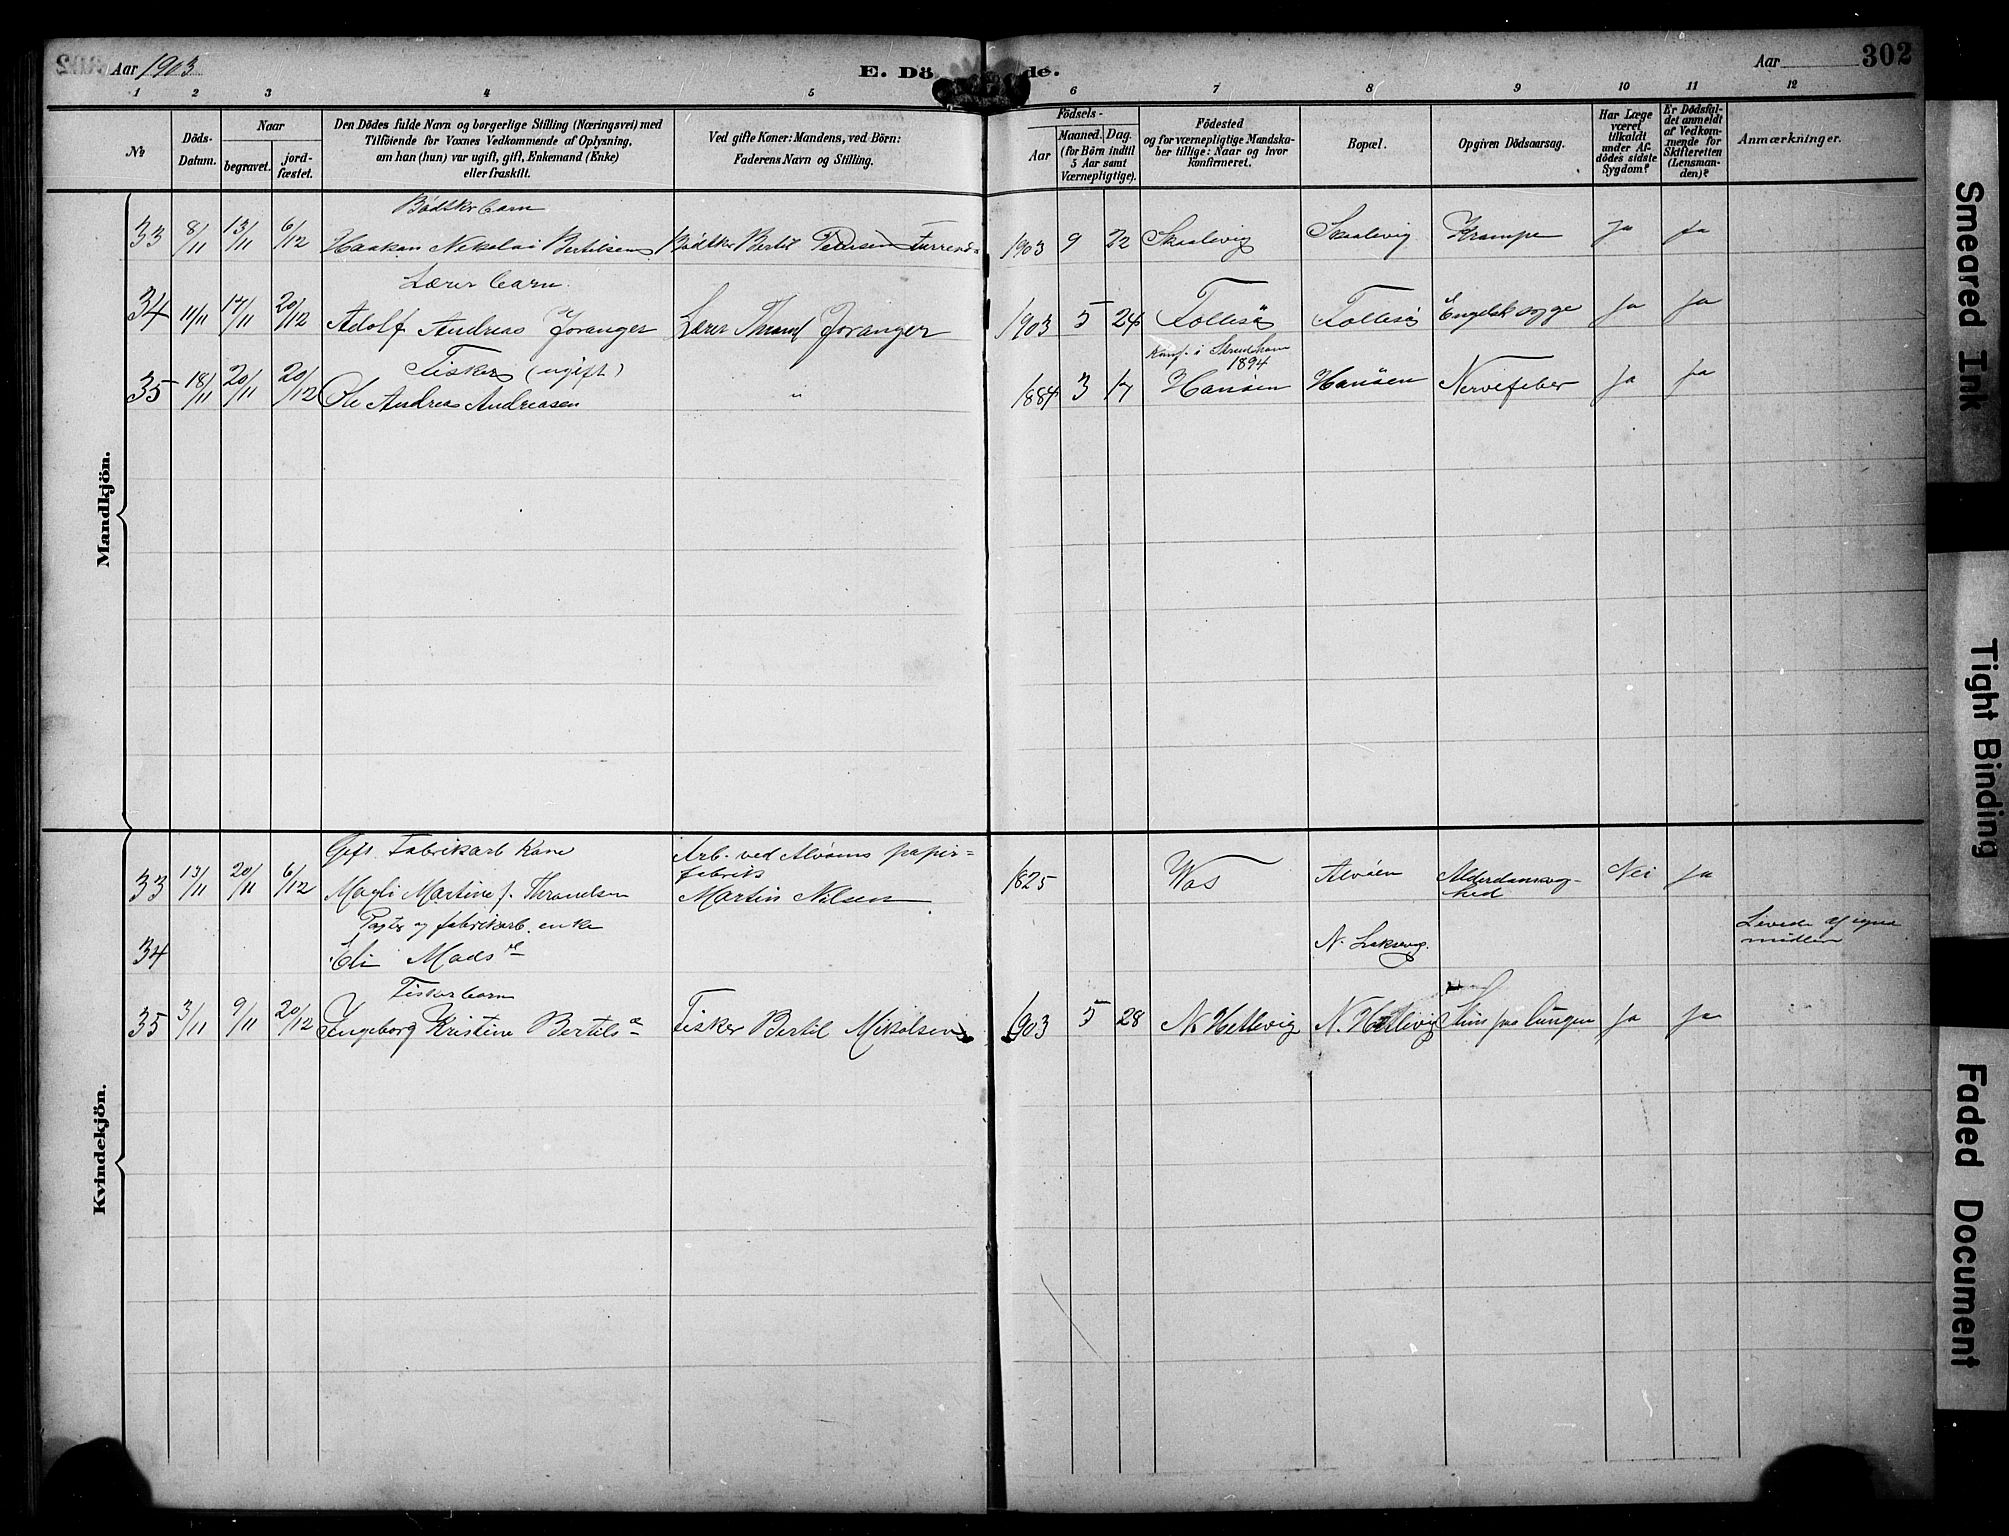 Aar 1903
E. Dö de.
Aar
302
1 2 3 4 5 6 7 8 9 10 11 12
№
Döds-
Datum.
Naar
begravet.
jord-
fæstet.
Den Dödes fulde Navn og borgerlige Stilling (Næringsvei) med
Tilföiende for Voxnes Vedkommende af Oplysning,
om han (hun) var ugift, gift, Enkemand (Enke)
eller fraskilt.
Ved gifte Koner: Mandens, ved Börn:
Faderens Navn og Stilling.
Födsels-
Aar
Maaned.
Dag.
(for Börn indtil
5 Aar samt
Værnepligtige).
Födested
og for værnepligtige Mandska-
ber tillige: Naar og hvor
konfirmeret.
Bopæl.
Opgiven Dödsaarsag.
Har Læge
været
tilkaldt
under Af-
dödes sidste
Sygdom?
Er Dödsfal-
det anmeldt
af Vedkom-
mende for
Skifteretten
(Lensman-
den)?
Anmærkninger.
Mandkjön.
Bödker barn
33 8/11 13/11 6/12 Haakon Nekolai Bertilsen Bödker Bertil Pedersen 1903 9 22 Skaalevig Skaalevig Krampe Ja Ja
Lærer barn
34 11/11 17/11 20/12 Adolf Andreas Joranger Lærer Thrond Joranger 1903 5 24 Follesö Follesö Engelsk syge Ja Ja
Fisker (ugift) Konf. i
1894
35 18/11 20/11 20/12 Ole Andreas Andreasen " 1884 3 17 Hanöen Hanöen Nervefeber Ja Ja
Kvindekjön.
Gift Fabrikarb Kone Arb. ved Alvöens papir=
fabrik
33 13/11 20/11 6/12 Magli Martine f. Throndsen Martin Nilsen 1825 Vos Alvöen Alderdomssvag-
hed Nei Ja
og fabrikarb. enke Levede af egne
midler
34 Eli Mads N. Loksevig.
Fisker barn
35 3/11 9/11 20/12 Ingeborg Kristine Bertils Fisker Bertil Mikalsen 1903 5 28 N. Hetlevig N. Hetlevig Slim paa lungen Ja Ja
Smeared Ink
Tight Binding
Faded Document